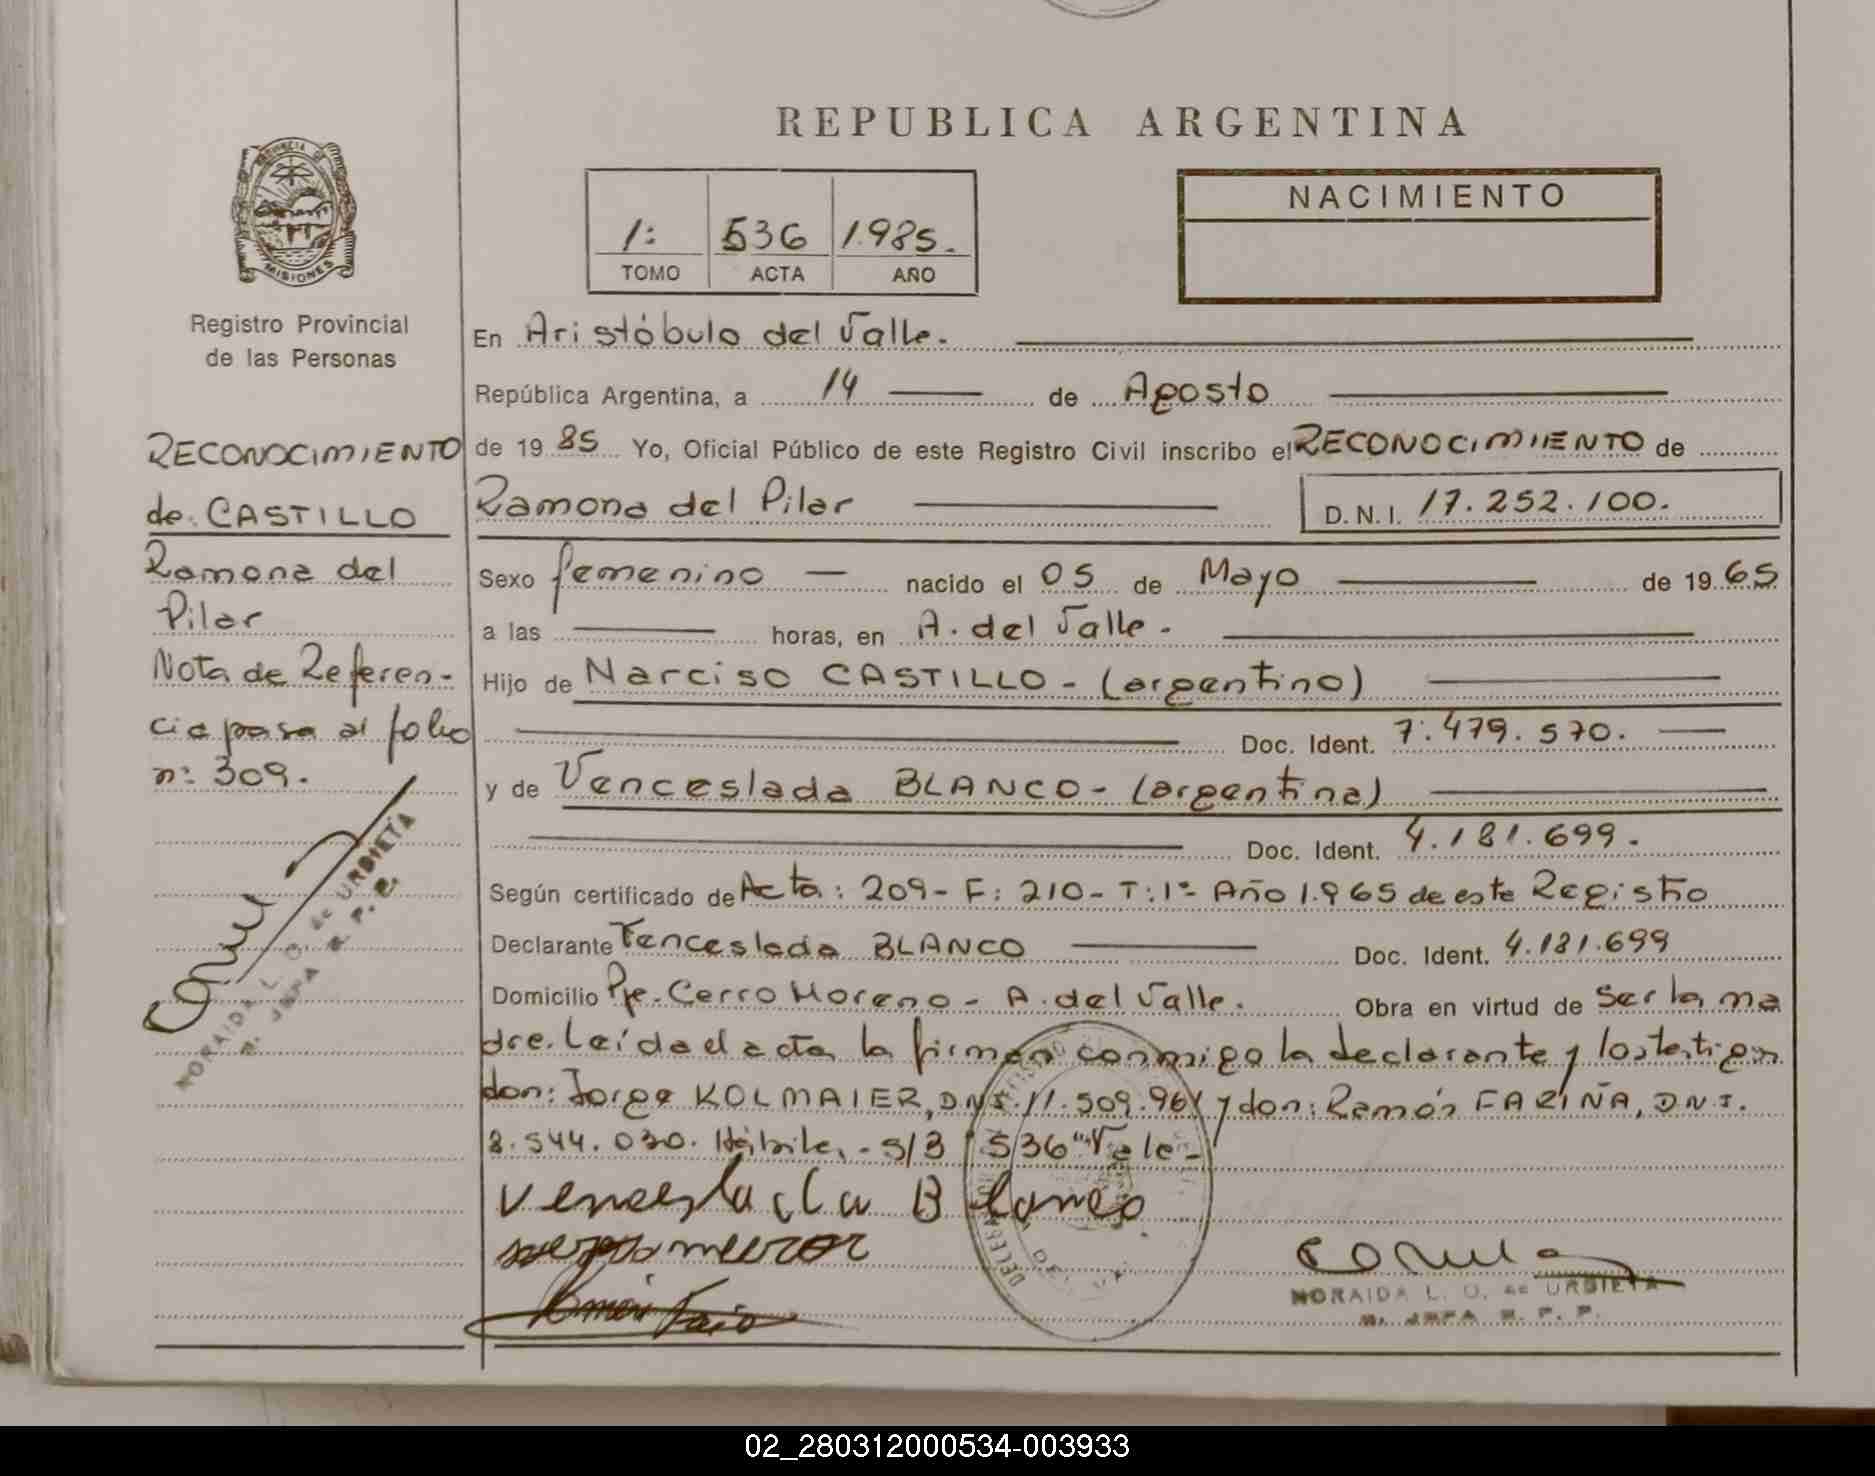 REPUBLICA ARGENTINA
PROVINCIA DE
MISIONES
Registro Provincial
de las Personas
1: 536 1.985.
TOMO ACTA AÑO
NACIMIENTO
RECONOCIMIENTO
de CASTILLO
Ramona del
Pilar
Nota de Referen-
cia pasa al folio
n: 309.
NORAIDA L. O. de URDIETA
En Aristóbulo del Valle.
República Argentina, a 14 de Agosto
de 19 85 Yo, Oficial Público de este Registro Civil inscribo el RECONOCIMIENTO de
Ramona del Pilar D.N.I. 17.252.100.
Sexo femenino nacido el 05 de Mayo de 19 65
a las horas, en A. del Valle.
Hijo de Narciso CASTILLO - (argentino)
Doc. Ident. 7.479.570.
y de Venceslada BLANCO - (argentina)
Doc. Ident. 4.181.699.
Según certificado de Acta: 209 - F: 210 - T: 1º Año 1.965 de este Registro
Declarante Venceslada BLANCO Doc. Ident. 4.181.699
Domicilio Pje. Cerro Moreno - A. del Valle. Obra en virtud de ser la ma
dre. Leída el acta la firman conmigo la declarante y los testigos
don: Jorge KOLMAIER, D.N.I. 11.509.96 y don: Ramón FARIÑA, D.N.I.
8.544.030. Hábiles. - S/B "536" Vale -
Venceslada Blanco
NORAIDA L. O. de URDIETA
R. P. P.
02_280312000534-003933